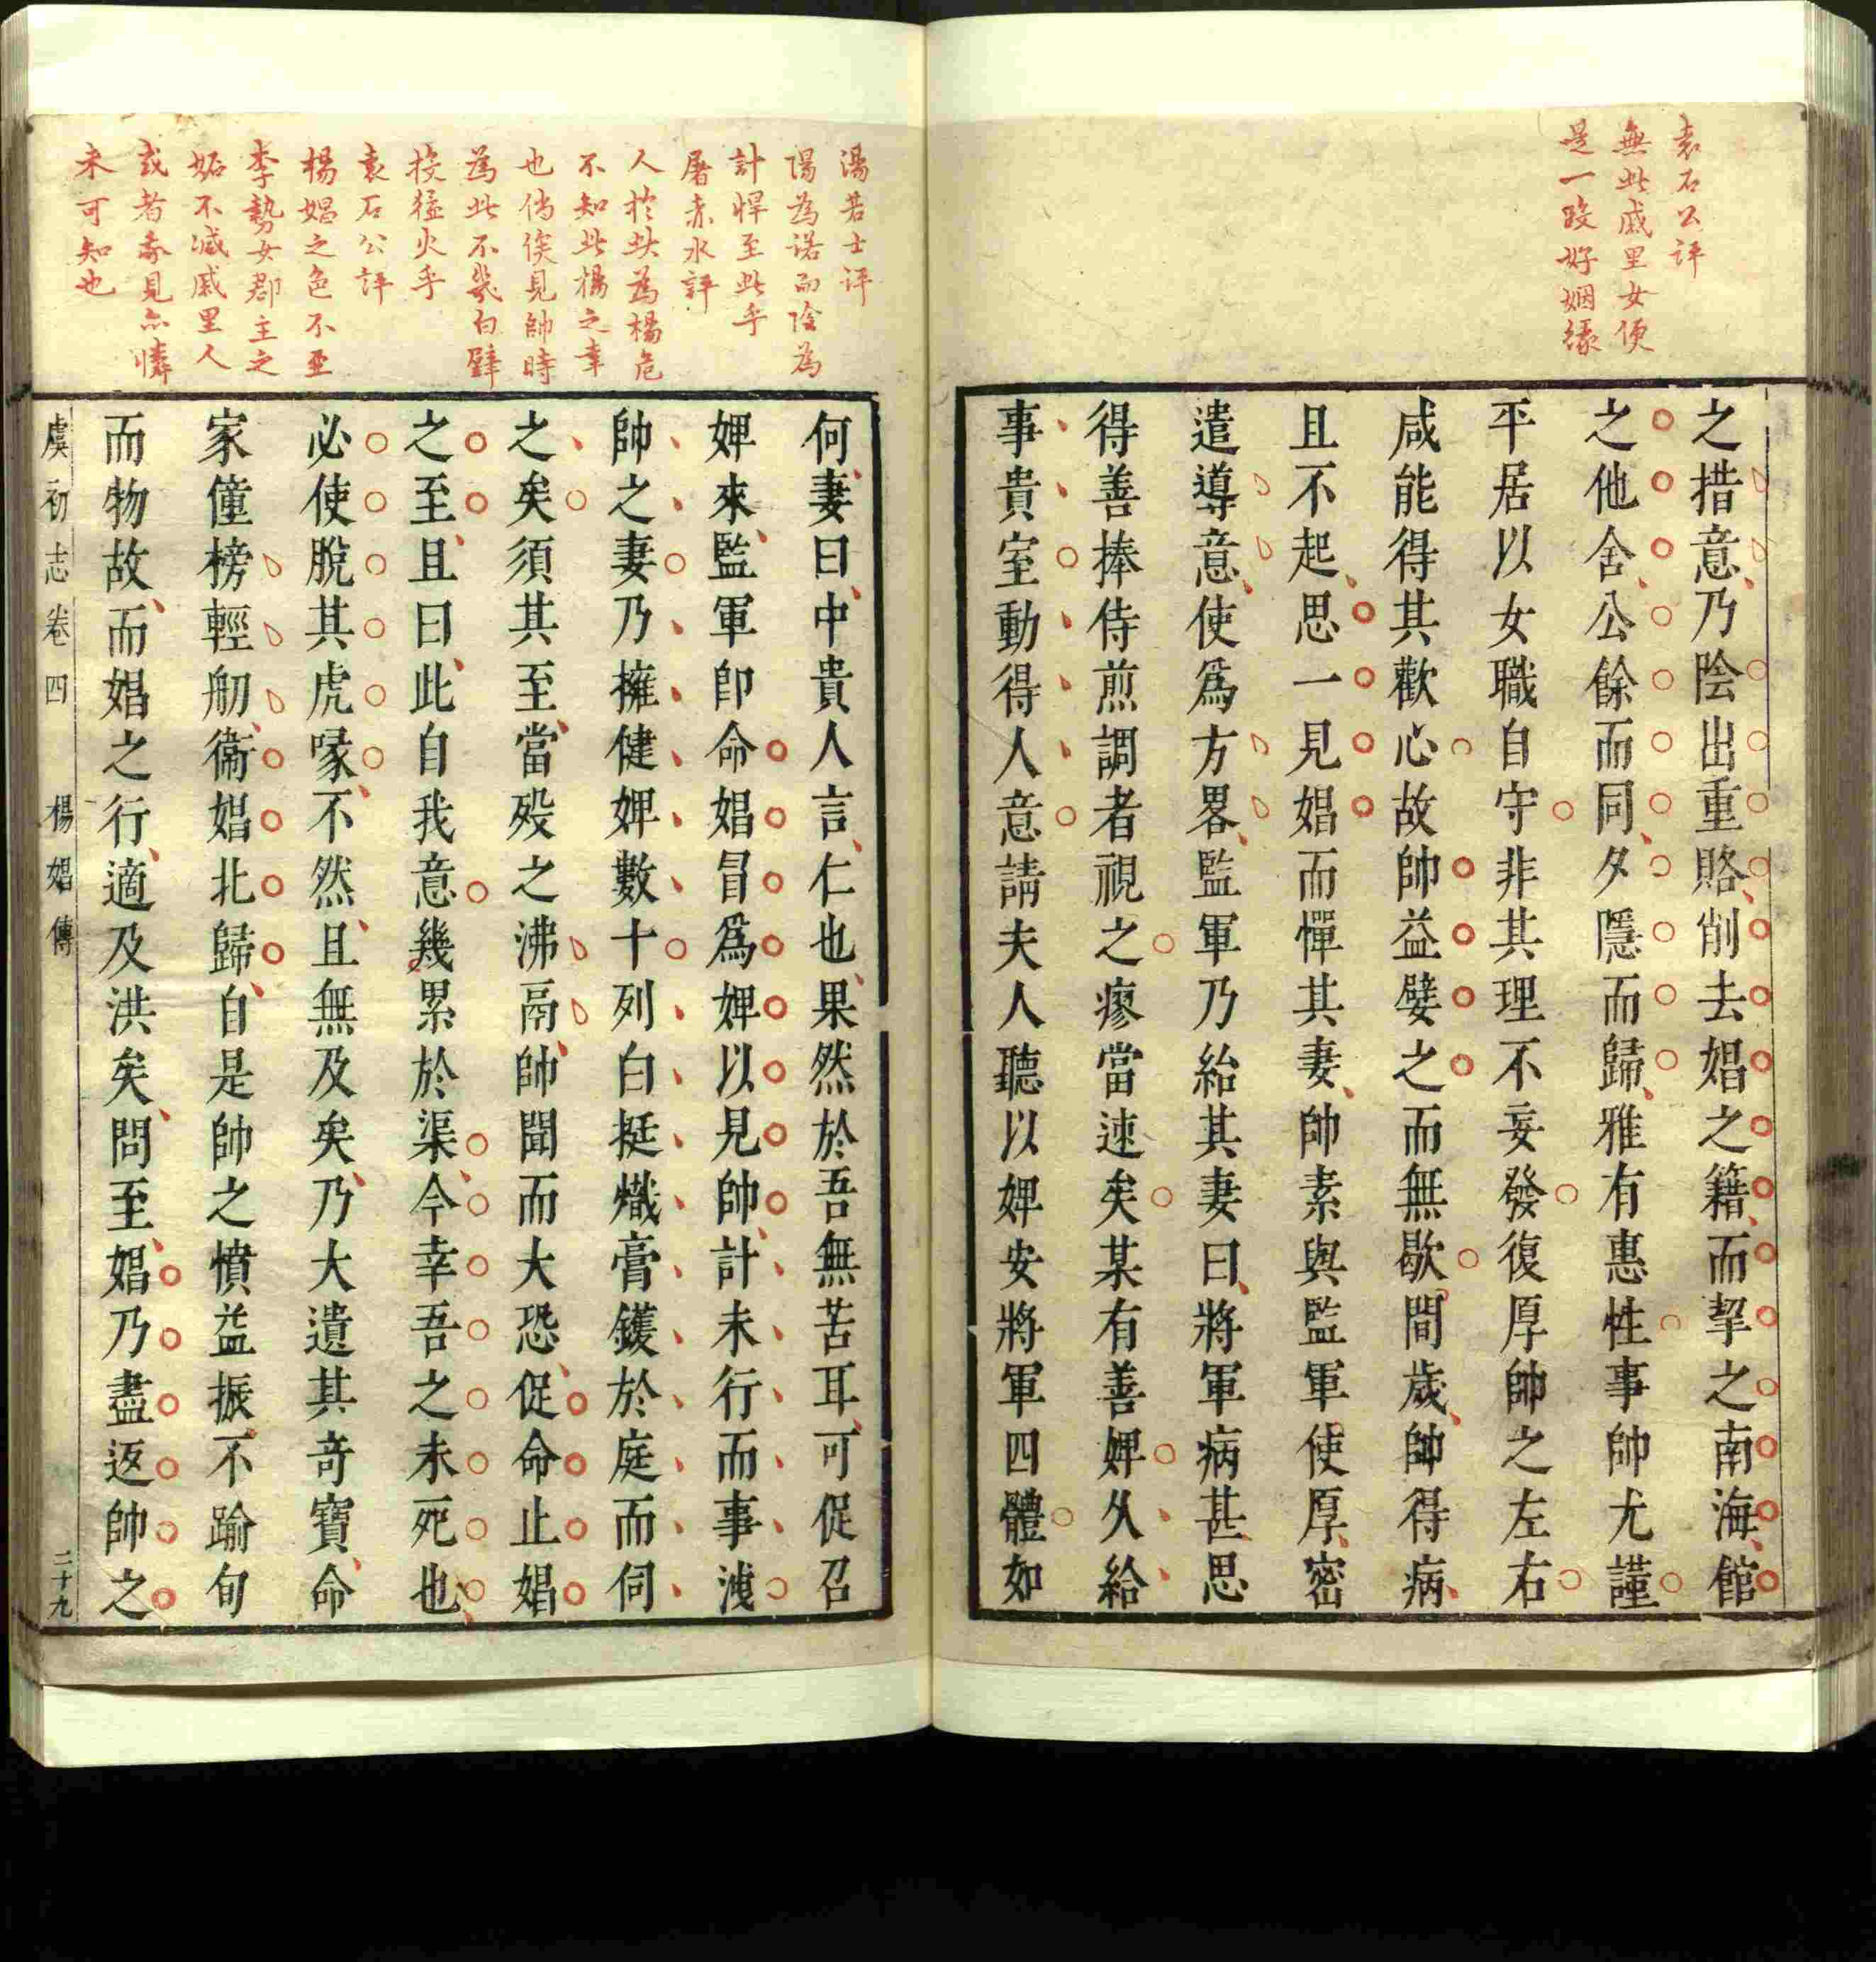 袁石公評
無此戚里女便
是一段好姻緣
之措意乃陰出重賂削去娼之籍而挈之南海館
之他舍公餘而同夕隱而歸雅有惠性事帥尤謹
平居以女職自守非其理不妄發復厚帥之左右
咸能得其歡心故帥益嬖之而無歇間歲帥得病
且不起思一見娼而憚其妻帥素與監軍使厚密
遣導意使爲方畧監軍乃紿其妻曰將軍病甚思
得善捧侍煎調者視之瘳當速矣某有善婢久給
事貴室動得人意請夫人聽以婢安將軍四體如
湯若士評
陽為諾而陰為
計悍至此乎
屠赤水評
人於此為楊危
不知此楊之幸
也倘俟見帥時
為此不幾白璧
投猛火乎
袁石公評
楊娼之色不亞
李勢女郡主之
妬不減戚里人
或者帝見亦憐
未可知也
何妻曰中貴人言仁也果然於吾無苦耳可促召
婢來監軍卽命娼冒爲婢以見帥計未行而事洩
帥之妻乃擁健婢數十列白挺熾膏鑊於庭而伺
之矣須其至當殁之沸鬲帥聞而大恐促命止娼
之至且曰此自我意幾累於渠今幸吾之未死也
必使脫其虎喙不然且無及矣乃大遺其奇寶命
家僮榜輕舠衞娼北歸自是帥之憤益振不踰旬
而物故而娼之行適及洪矣問至娼乃盡返帥之
虞初志卷四 楊娼傳 二十九